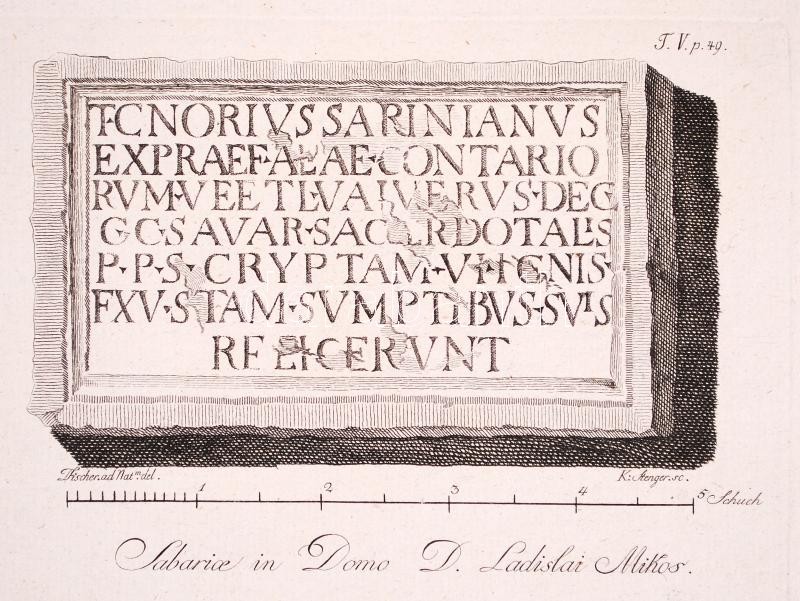 T. V. p. 49.
T·CNORIVS SARINIANVS
EXPRAEF·ALAE·CONTARIO
RVM·V EETI·VAIVERVS·DEC
G·C·SAVAR·SACERDOTALIS
P·P·S·CRYPTAM·VI·IGNIS·
FXV·STAM·SVMPTIBVS·SVIS
REFICERVNT
Fischer. ad Nat.m del.
K: Stenger. sc.
1 2 3 4 5 Schuch
Sabariæ in Domo D. Ladislai Mikos.